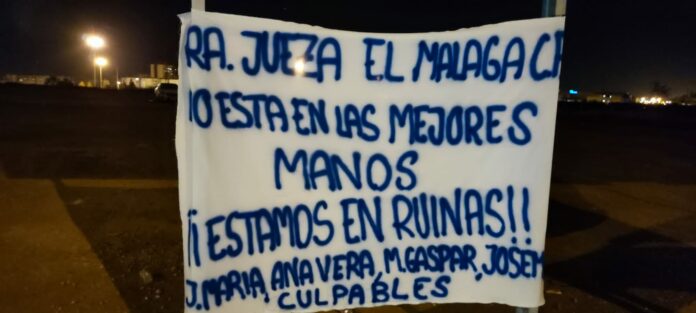 RA. JUEZA EL MALAGA C.F
NO ESTA EN LAS MEJORES
MANOS
¡¡ESTAMOS EN RUINAS!!
J. MARIA, ANA VERA, M. GASPAR, JOSE M
CULPABLES